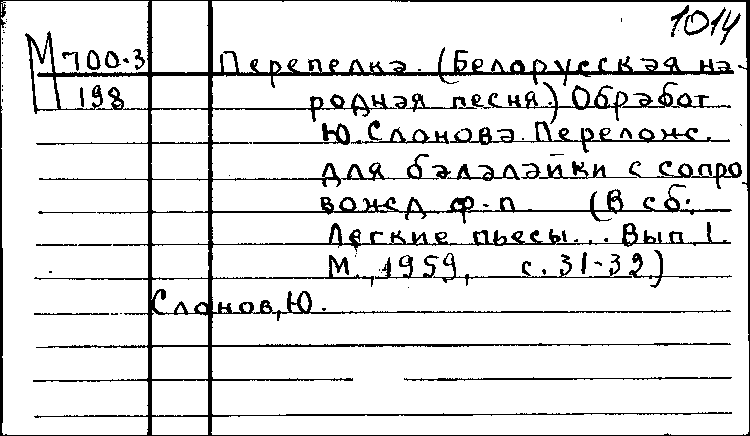 1014
М 700-3 Перепелка. (Белорусская на-
198 родная песня.) Обработ
Ю. Слонова. Перелож.
для балалайки с сопро
вожд ф-п (В сб:
Легкие пьесы... Вып 1.
М., 1959, с. 31-32.)
Слонов, Ю.